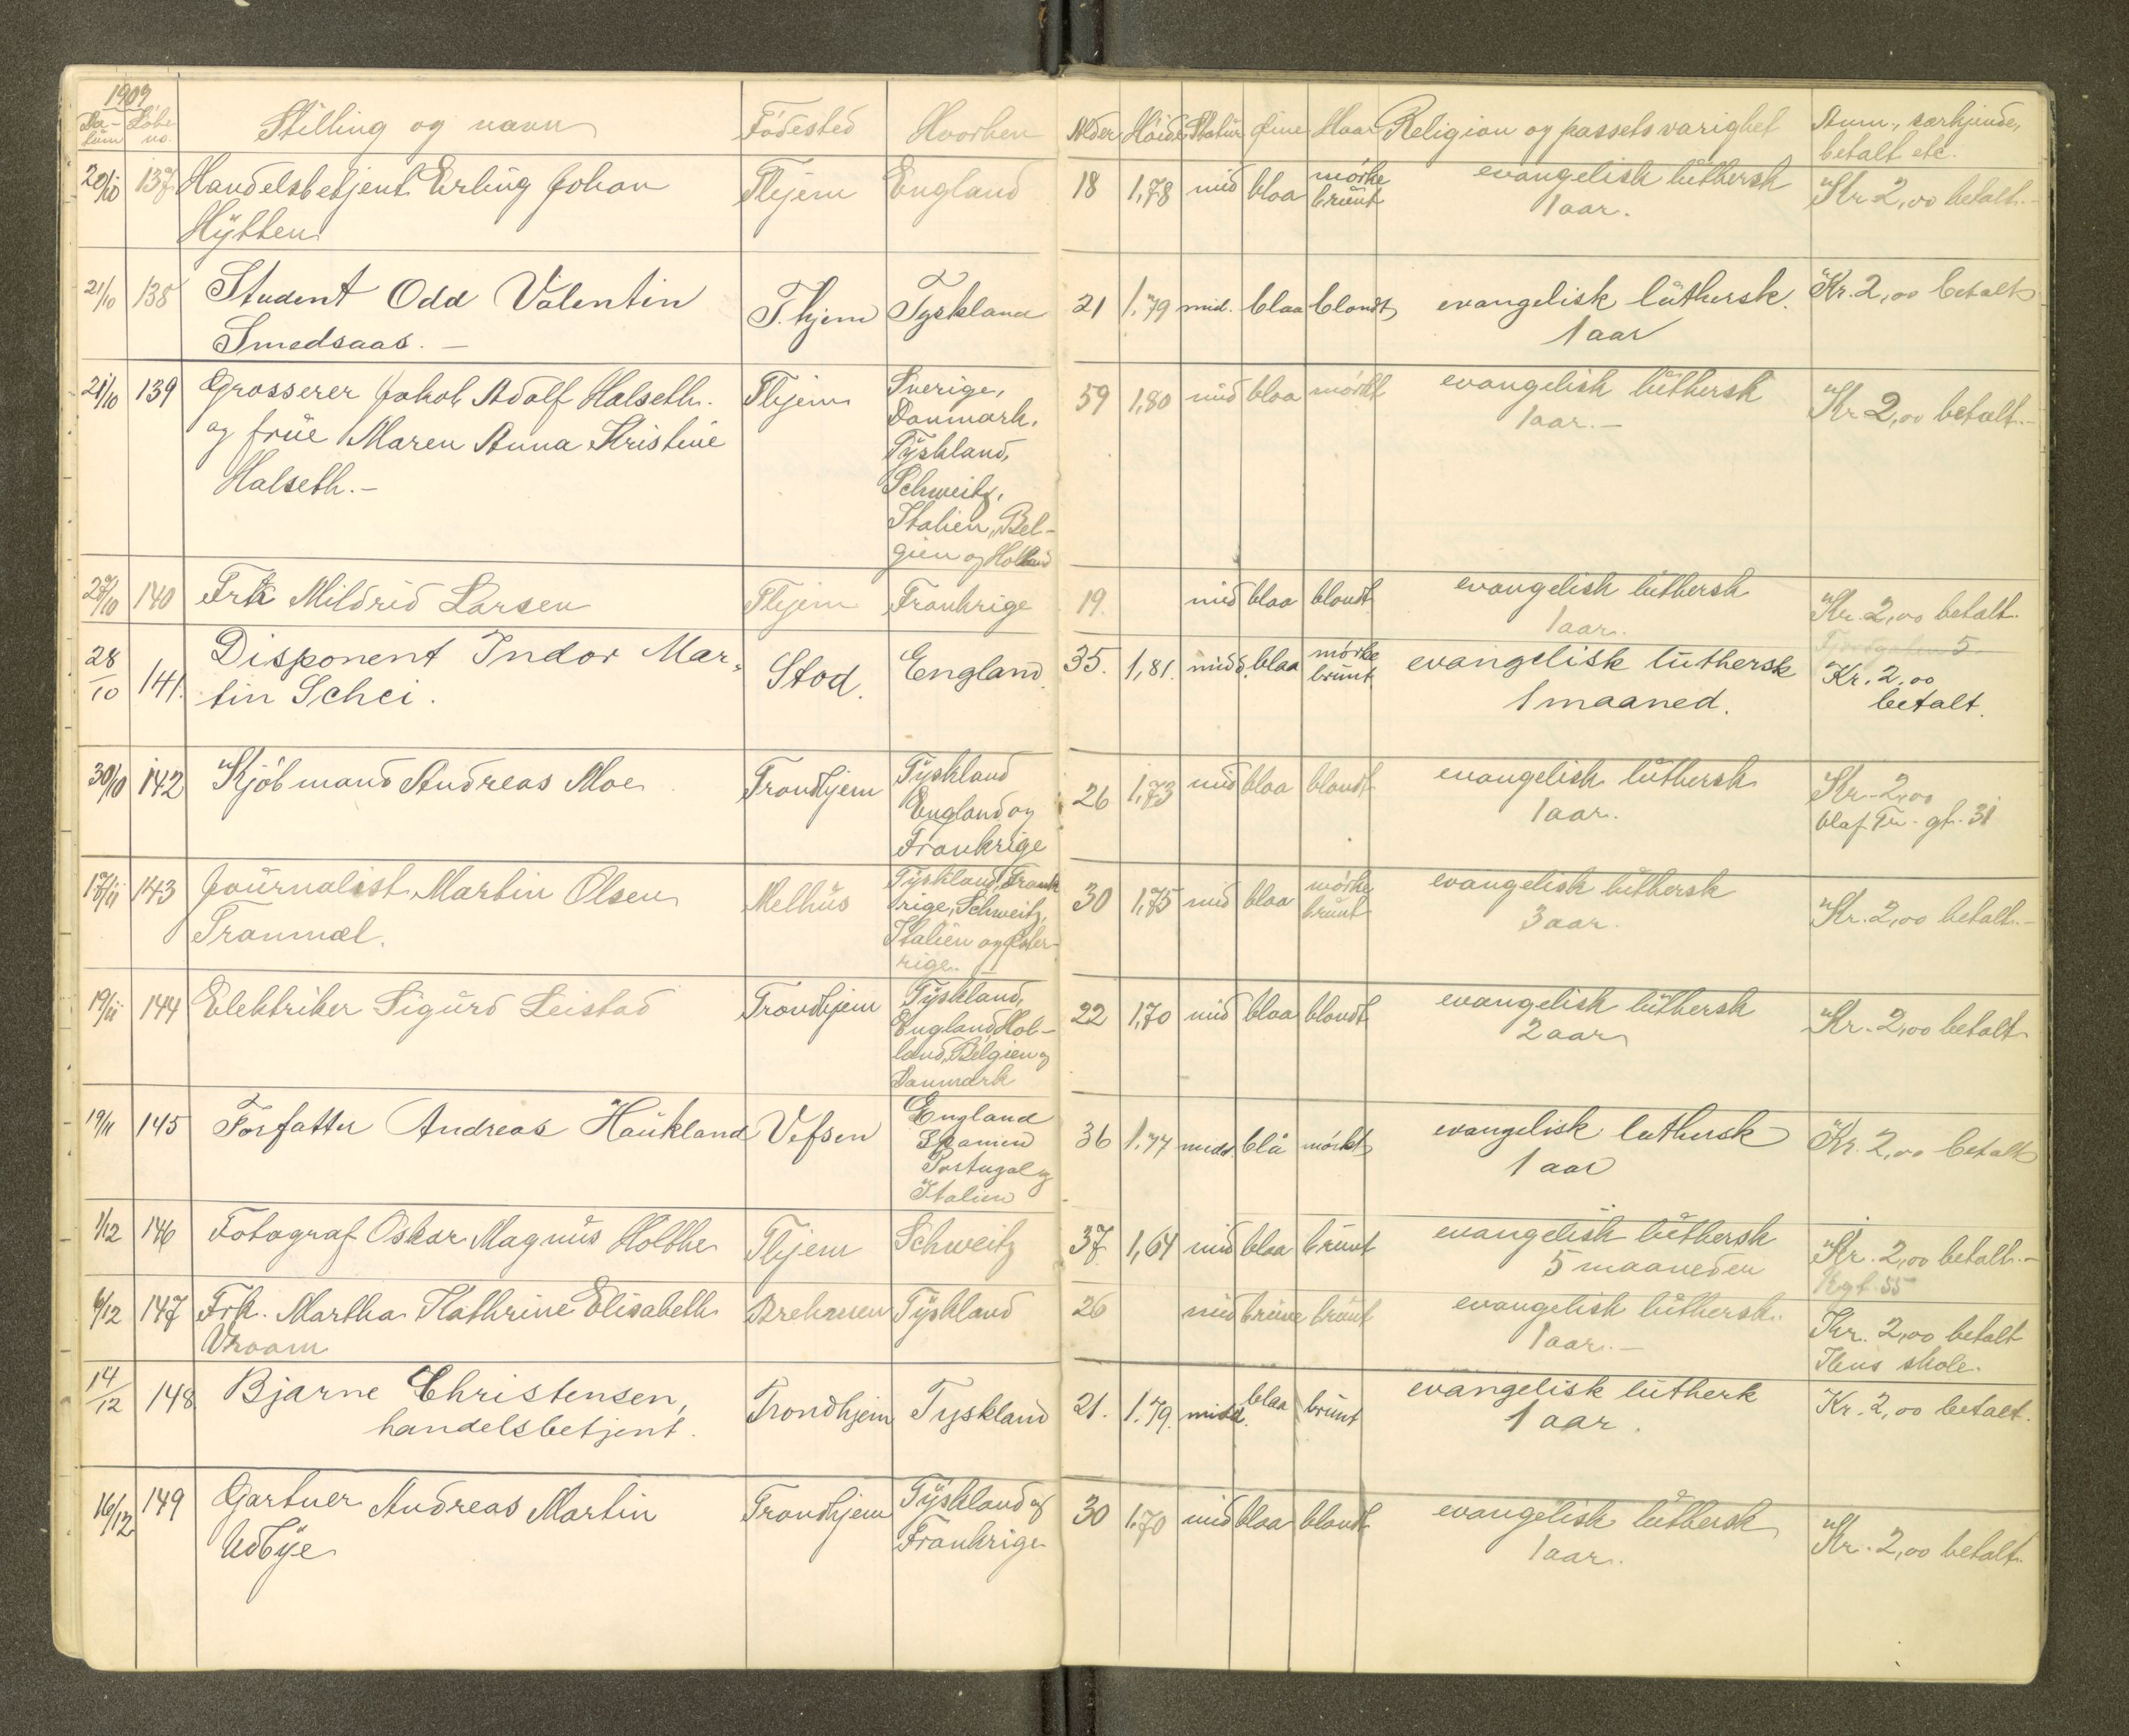 1909
Da-tum Løbe no. Stilling og navn Fødested Hvorhen Alder Høide Statur Øine Haar Religion og passets varighet Anm., særkjende, betalt etc.
20/10 137 Handelsbetjent Erling Johan Thjem England 18 1,78 mid blaa mørke brunt evangelisk luthersk Kr 2,00 betalt.-
Hytten 1 aar.
21/10 138 Student Odd Valentin T.hjem Tyskland 21 1.79 mid. blaa blondt evangelisk luthersk. Kr. 2,00 betalt
Smedsaas. - 1 aar
21/10 139 Grosserer Jakob Adolf Halseth. Thjem Sverige, 59 1,80 mid blaa mørkt evangelisk luthersk Kr 2,00 betalt.-
og frue Maren Anna Kristine Danmark, 1 aar.-
Halseth.- Tyskland,
Schweitz,
Italien, Bel-
gien og Holland
27/10 140 Frk Mildrid Larsen Thjem Frankrige 19. mid blaa blondt evangelisk luthersk Kr. 2,00 betalt.
1 aar. 5.
28/10 141. Disponent Indor Mar- Stod. England. 35. 1,81. midd. blaa mørke brunt evangelisk luthersk Kr. 2,00
tin Schei. 1 maaned. betalt.
30/10 142 Kjøbmand Andreas Moe Trondhjem Tyskland 26 1,73 mid blaa blondt evangelisk luthersk Kr. 2,00
England og 1 aar. Olaf Tr. gt. 31
Frankrige
17/11 143 Journalist Martin Olsen Melhus Tyskland, Frank 30 1,75 mid blaa mørke brunt evangelisk luthersk Kr. 2,00 betalt.-
Tranmæl. rige, Schweitz, 3 aar.
Italien og Øster-
rige.
19/11 144 Elektriker Sigurd Leistad Trondhjem Tyskland, 22 1,70 mid blaa blondt evangelisk luthersk Kr. 2,00 betalt
England, Hol- 2 aar
land, Belgien og
Danmark
19/11 145 Forfatter Andreas Haukland Vefsen England 36 1.77 midd. blå mørkt evangelisk luthersk Kr. 2,00 betalt
Spanien 1 aar
Portugal og
Italien
1/12 146 Fotograf Oskar Magnus Holthe Thjem Schweitz 37. 1,64 mid blaa brunt evangelisk luthersk Kr. 2,00 betalt.-
5 maaneder Kgt. 55
6/12 147 Frk. Martha Kathrine Elisabeth Brehmen Tyskland 26 mid brune brunt evangelisk luthersk. Kr. 2,00 betalt
Vroom 1 aar.- Thns skole.
14/12 148 Bjarne Christensen, Trondhjem Tyskland 21. 1.79. midd. blaa brunt evangelisk lutherk Kr. 2,00 betalt.
handelsbetjent. 1 aar.
16/12 149 Gartner Andreas Martin Trondhjem Tyskland og 30 1.70 mid blaa blondt evangelisk luthersk Kr. 2,00 betalt.
Udbye Frankrige 1 aar.